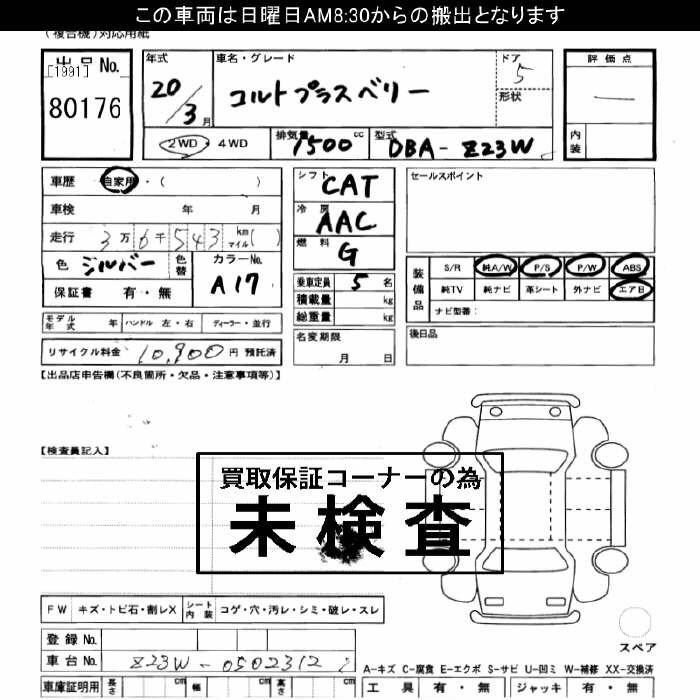 この車両は日曜日AM8:30からの搬出となります
(複合機)対応用紙
出品No.
[1991]
80176
年式
20/3月
車名・グレード
コルトプラスベリー
ドア
5
形状
2WD・4WD
排気量
1500cc
型式
DBA-Z23W
評価点
—
内装
車歴 自家用・( )
車検 年 月
走行 3万6千543 km マイル( )
色 シルバー 色替
カラーNo.
A17
保証書 有・無
シフト
CAT
冷房
AAC
燃料
G
乗車定員 5名
積載量 kg
総重量 kg
セールスポイント
装備品
S/R 純A/W P/S P/W ABS
純TV 純ナビ 革シート 外ナビ エアB
ナビ型番:
モデル年式 年 ハンドル 左・右 ディーラー・並行
名変期限
月 日
後日品
リサイクル料金 10,900円 預託済
【出品店申告欄(不良箇所・欠品・注意事項等)】
【検査員記入】
買取保証コーナーの為
未検査
FW キズ・トビ石・割レX シート内装 コゲ・穴・汚レ・シミ・破レ・スレ
登録No.
車台No. Z23W-0502312
スペア
A-キズ C-腐食 E-エクボ S-サビ U-凹ミ W-補修 XX-交換済
車庫証明用 長さ cm 幅 cm 高さ cm
工具 有・無 ジャッキ 有・無